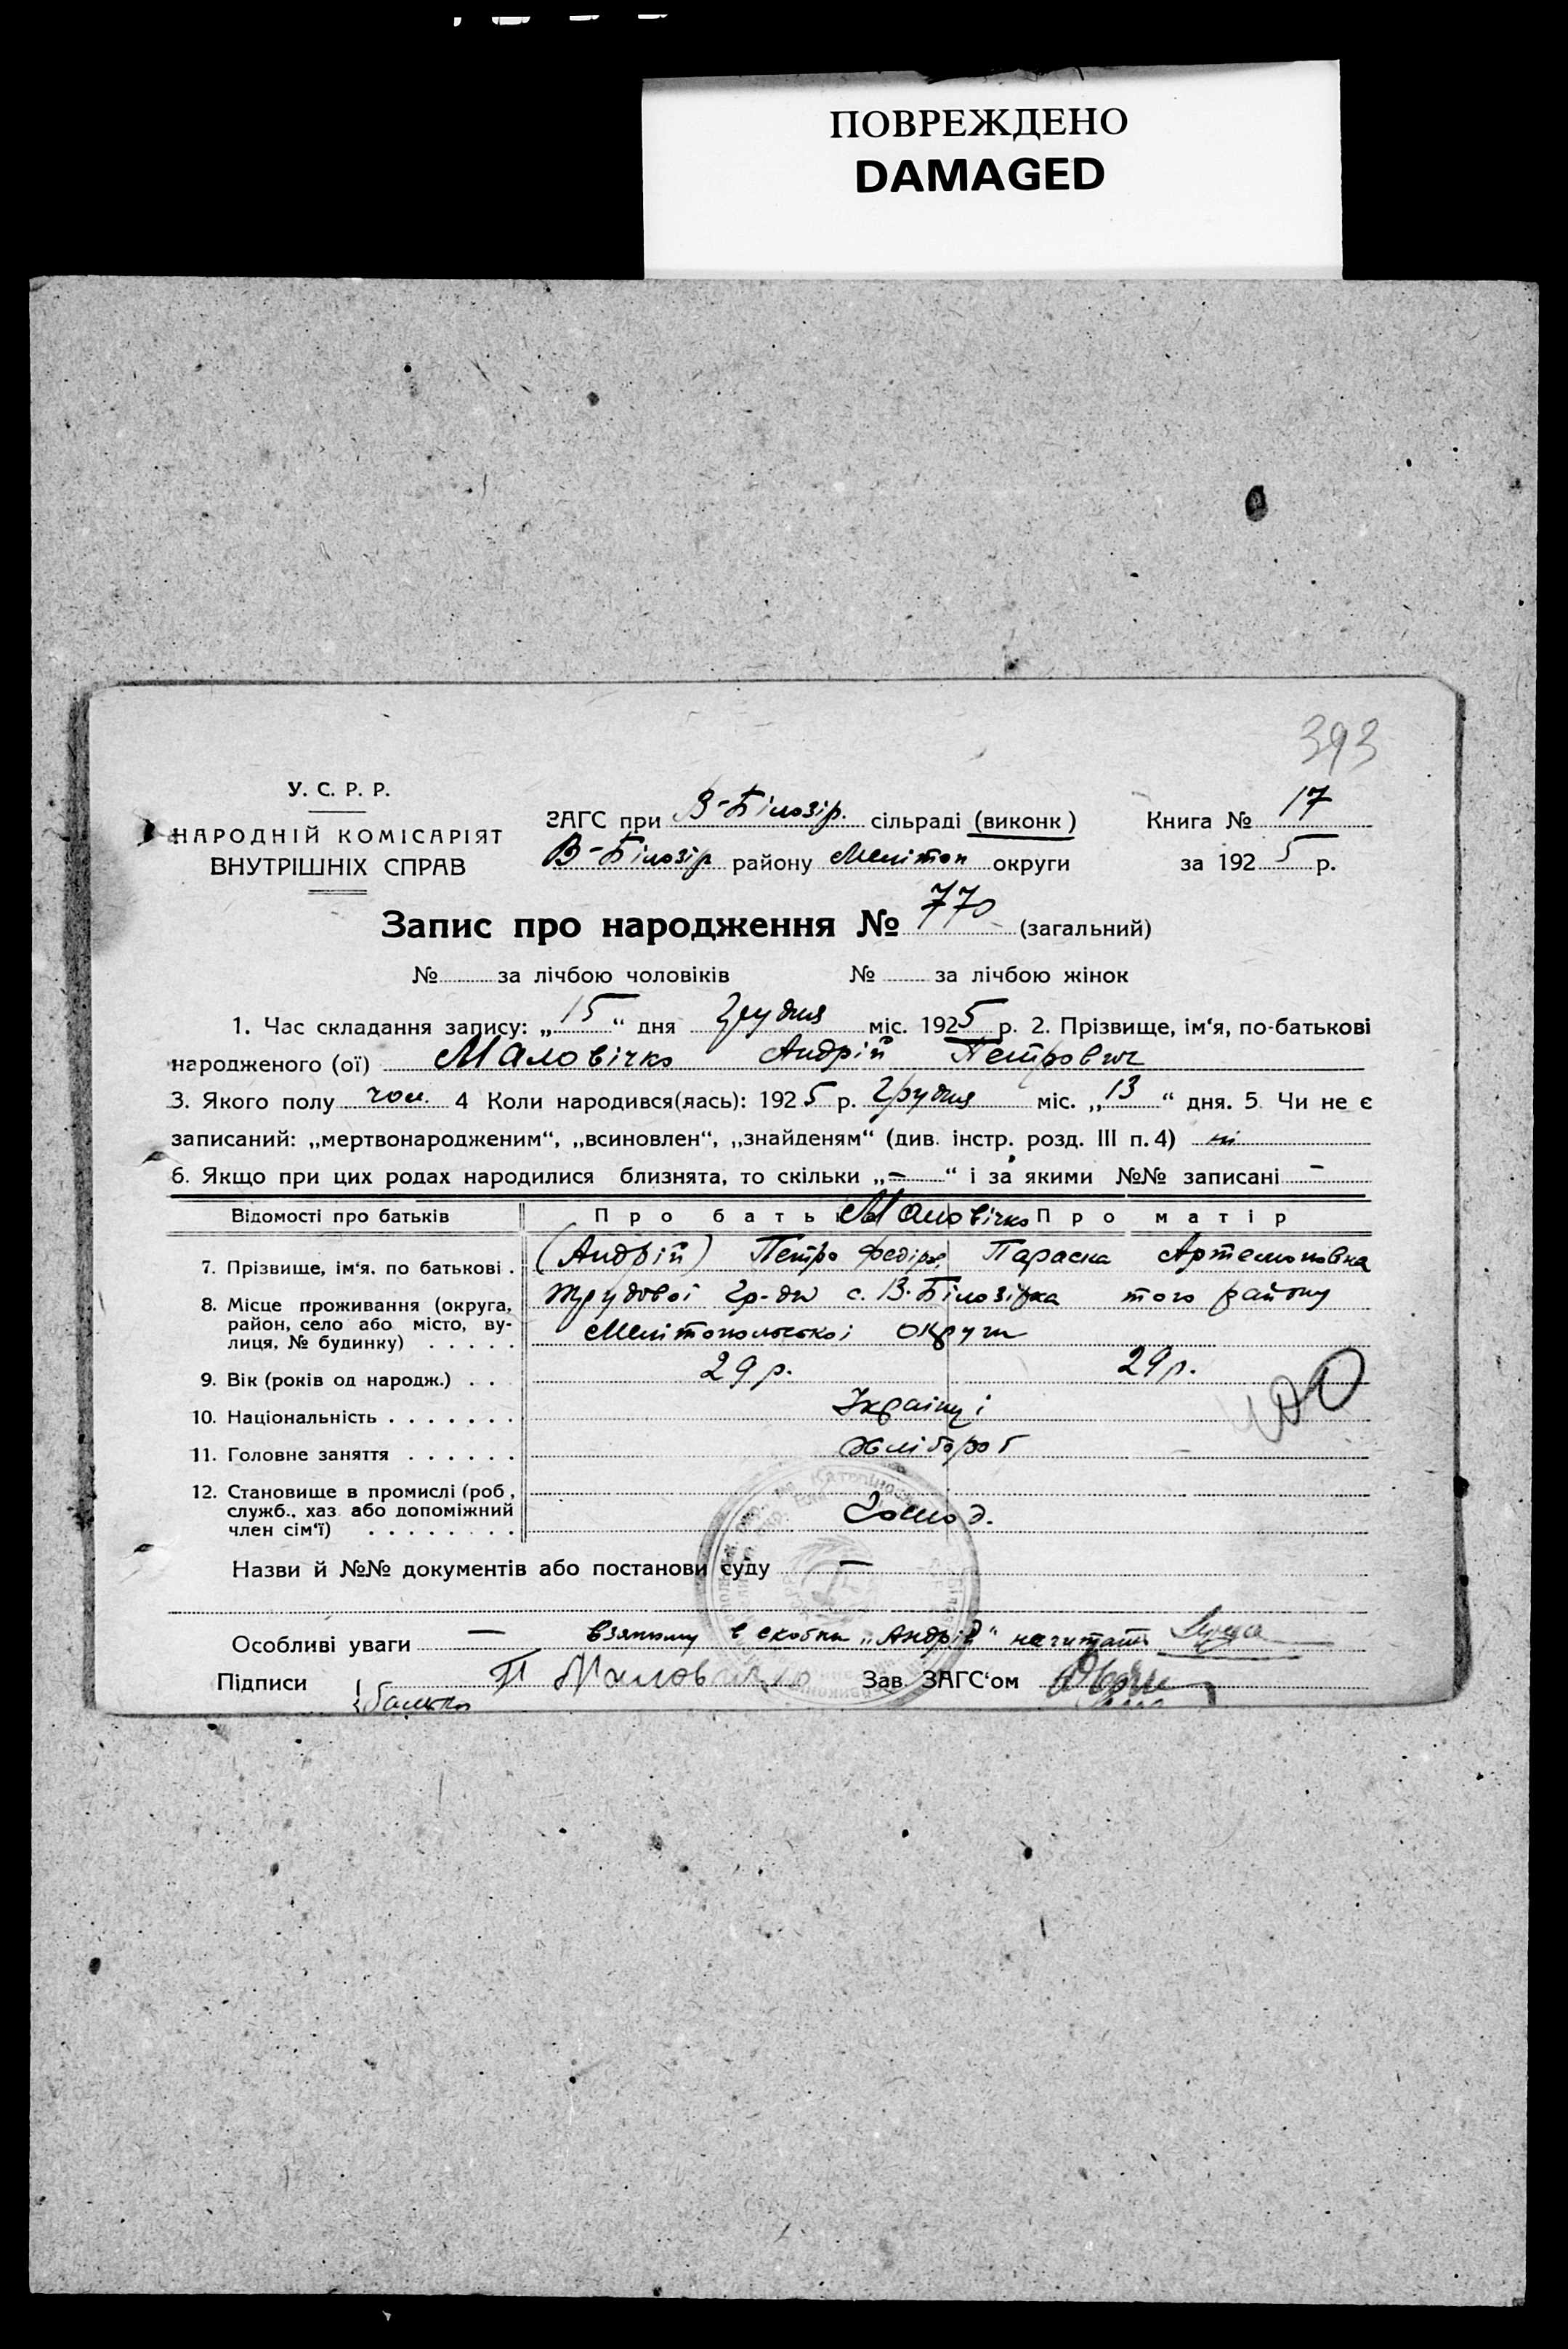 ПОВРЕЖДЕНО
DAMAGED
393
У. С. Р. Р.
НАРОДНІЙ КОМІСАРІЯТ
ВНУТРІШНІХ СПРАВ
ЗАГС при В-Білозір. сільраді (виконк)
В-Білозір району Мелітоп округи
Книга № 17
за 1925 р.
Запис про народження № 770 (загальний)
№ за лічбою чоловіків № за лічбою жінок
1. Час складання запису: „15“ дня Грудня міс. 1925 р. 2. Прізвище, ім‘я, по-батькові
народженого (ої) Маловічко Андрій Петрович
3. Якого полу чол. 4 Коли народився(лась): 1925 р. Грудня міс. „13“ дня. 5. Чи не є
записаний: „мертвонародженим“, „всиновлен“, „знайденям“ (див. інстр. розд. III п. 4) ні
6. Якщо при цих родах народилися близнята, то скільки „—“ і за якими №№ записані —
Відомості про батьків Про батька Маловічко Про матір
7. Прізвище, ім‘я. по батькові . (Андрій) Петро Федіров. Параска Артемоновна
8. Місце проживання (округа, район, село або місто, вулиця, № будинку) . . . . . Трудової гр-ди с. В. Білозірка того району
Мелітопольської округи
9. Вік (років од народж.) . . 29 р. 29 р.
10. Національність . . . . . . . Українці
11. Головне заняття . . . . . . Хлібороб
12. Становище в промислі (роб, служб., хаз. або допоміжний член сім‘ї) . . . . . . . . Господ.
Назви й №№ документів або постанови суду —
Особливі уваги — взятому в скобки „Андрій“ не читати
Підписи П Маловичко Зав. ЗАГС‘ом
батько